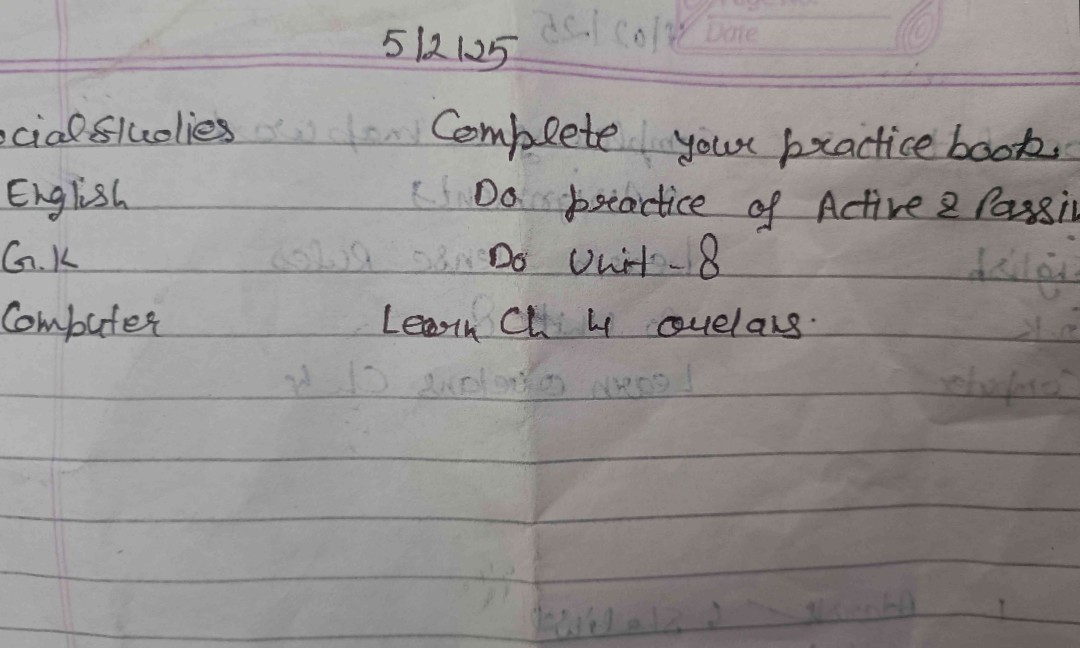 Date
5/2/25
ocial Studies Complete your practice book.
English Do practice of Active & Passiv
G.K Do Unit-8
Computer Learn Ch 4